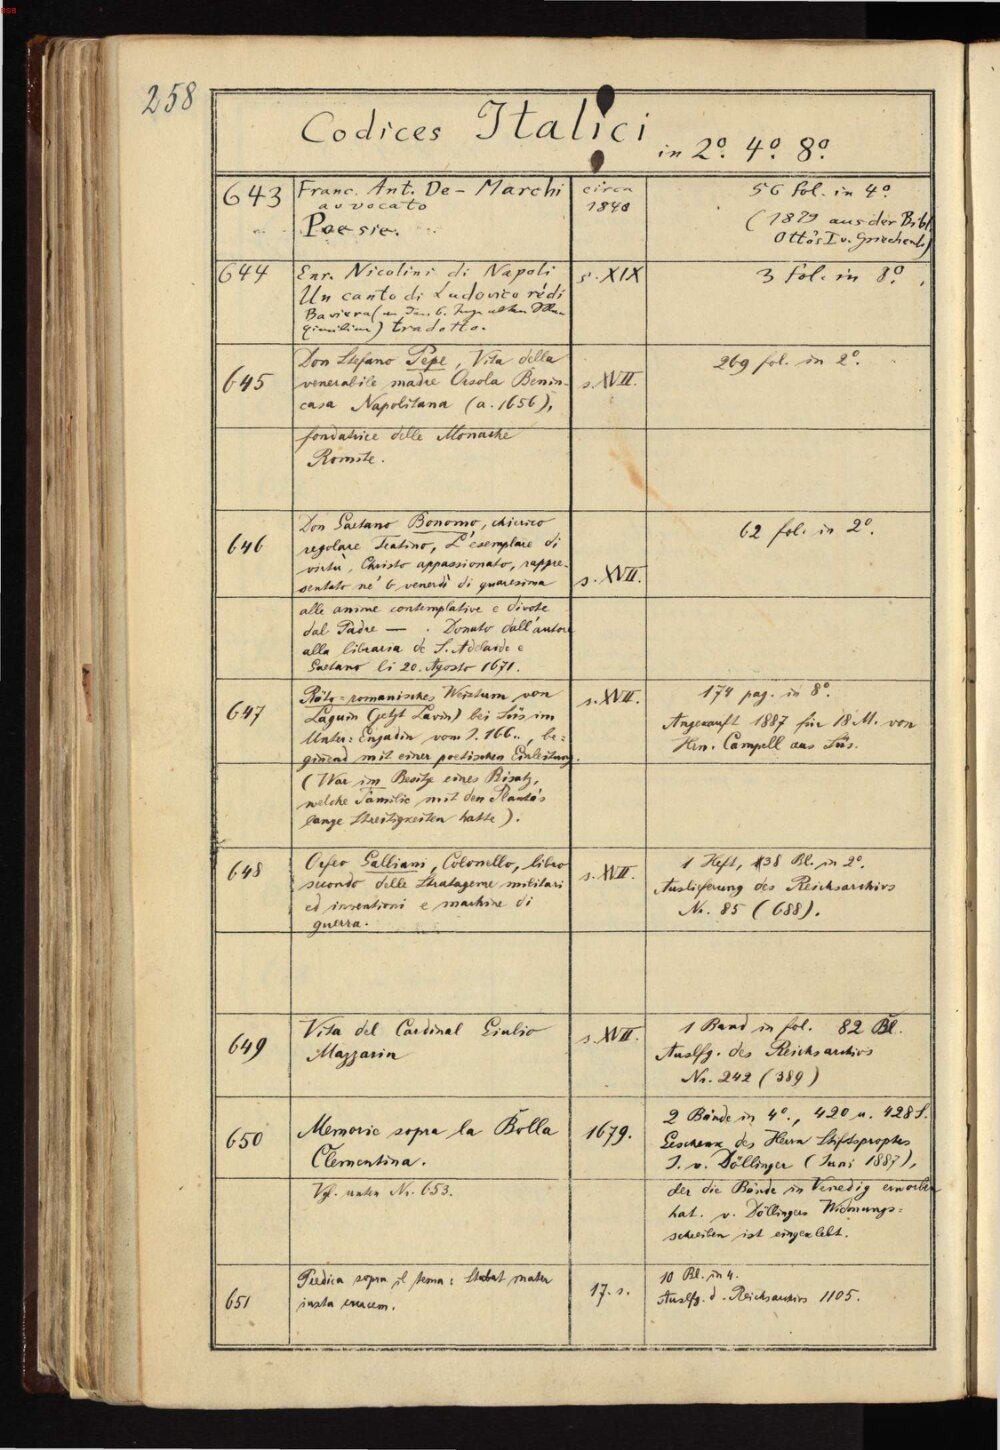 258
Codices Italici in 2º. 4º. 8º.
643
Franc. Ant. De-Marchi
avvocato
Poesie.
circa
1840
56 fol. in 4º
(1879 aus der Bibl.
Otto's I v. Griechenl.)
644
Enr. Nicolini di Napoli
Un canto di Ludovico rè di
Baviera
tradotto.
s. XIX
3 fol. in 8º.
645
Don Stefano Pepe, Vita della
venerabile madre Orsola Benin-
casa Napolitana (a. 1656),
fondatrice delle Monache
Romite.
s. XVII.
269 fol. in 2º.
646
Don Gaetano Bonomo, chierico
regolare Teatino, L'esemplare di
virtù, Christo appassionato, rappre-
sentato ne' 6 venerdì di quaresima
alle anime contemplative e divote
dal Padre — . Donato dall'autore
alla libraria de S. Adelaide e
Gaetano li 20. Agosto 1671.
s. XVII.
62 fol. in 2º.
647
Räto-romanisches Weistum von
Laguin (jetzt Lavin) bei Süs im
Unter-Engadin vom J. 166.., be-
ginnend mit einer poetischen Einleitung.
(War im Besitze eines Bisatz,
welche Familie mit den Planta's
lange Streitigkeiten hatte).
s. XVII.
174 pag. in 8º.
Angekauft 1887 für 18 M. von
Hrn. Campell aus Süs.
648
Orfeo Galliani, Colonello, libro
secondo delle Stratageme militari
ed inventioni e machine di
guerra.
s. XVII.
1 Heft, 38 Bl. in 2º.
Auslieferung des Reichsarchivs
Nr. 85 (688).
649
Vita del Cardinal Giulio
Mazzarin
s. XVII.
1 Band in fol. 82 Bl.
Auslfg. des Reichsarchivs
Nr. 242 (389)
650
Memorie sopra la Bolla
Clementina.
Vgl. unten Nr. 653.
1679.
2 Bände in 4º., 420 u. 428 S.
Geschenk des Herrn Stiftspropstes
J. v. Döllinger (Juni 1887),
der die Bände in Venedig erworben
hat. v. Döllingers Widmungs-
schreiben ist eingeklebt.
651
Predica sopra il tema: Stabat mater
iuxta crucem.
17. s.
10 Bl. in 4.
Auslfg. d. Reichsarchivs 1105.